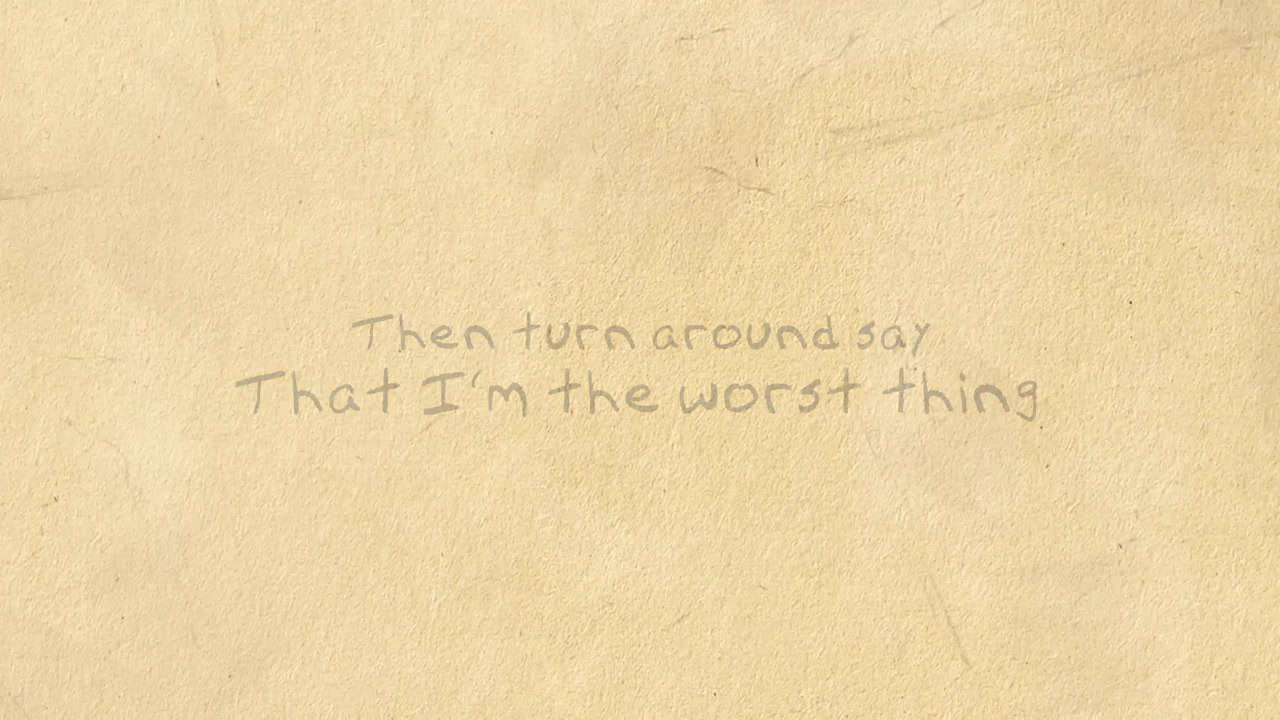 Then turn around say
That I'm the worst thing